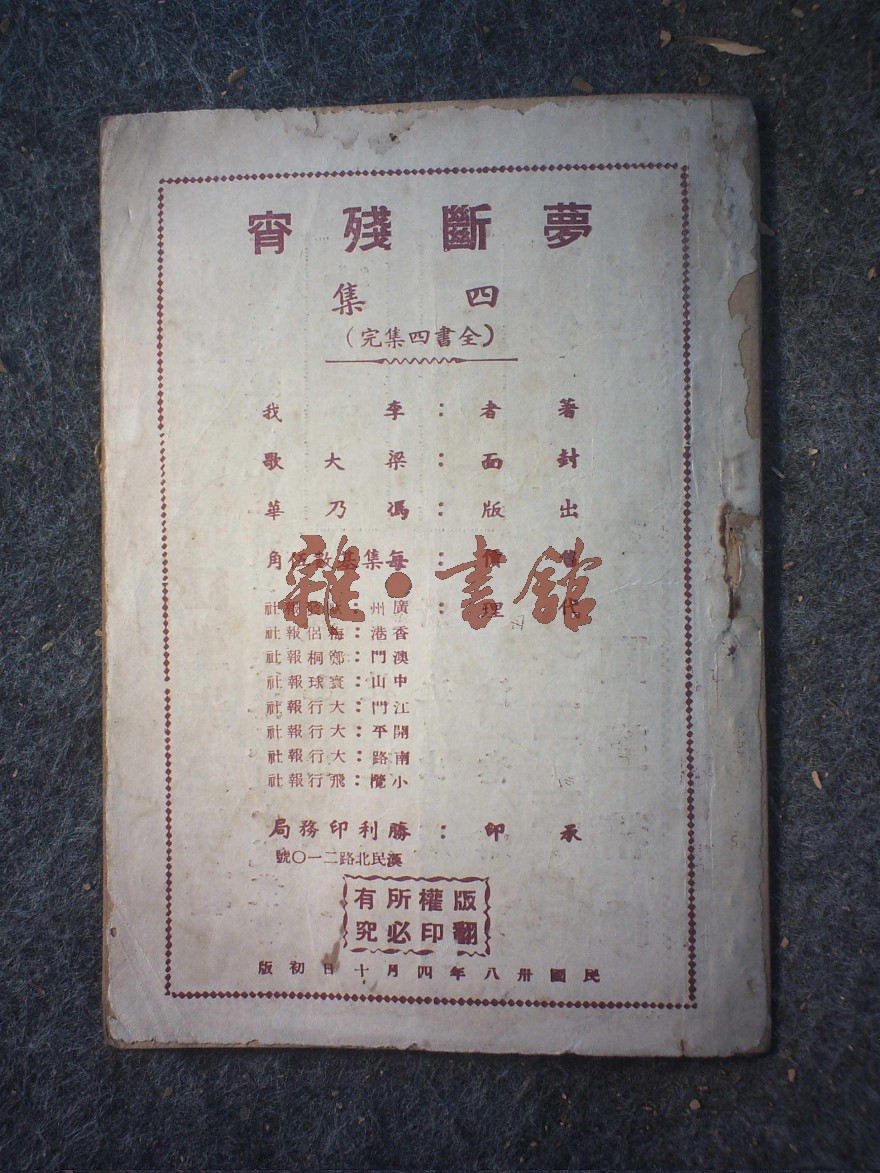 夢斷殘宵
四集
(全書四集完)
著者:李我
封面:梁大歌
出版:馮乃華
價:每集基數伍角
代理:廣州:報社
香港:梅侶報社
澳門:鄭桐報社
中山:寰球報社
江門:大行報社
開平:大行報社
南路:大行報社
小欖:飛行報社
承印:勝利印務局
漢民北路二一〇號
版權所有
翻印必究
民國卅八年四月十日初版
雜·書館